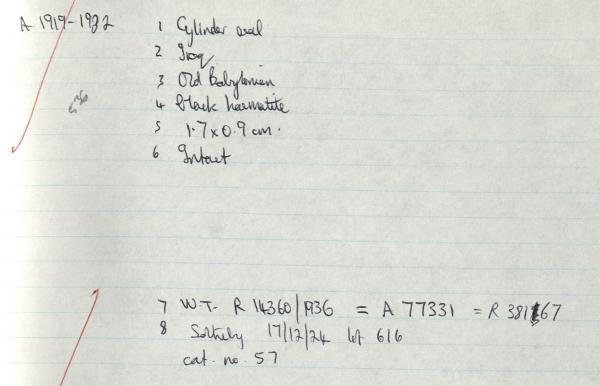 A 1919-1982
1 Cylinder seal
2 Iraq
3 Old Babylonian
4 black haematite
5 1.7 x 0.9 cm.
6 Intact
7 W.T. R 14360/1936 = A 77331 = R 381167
8 Sotheby 17/12/24 lot 616
cat. no. 57